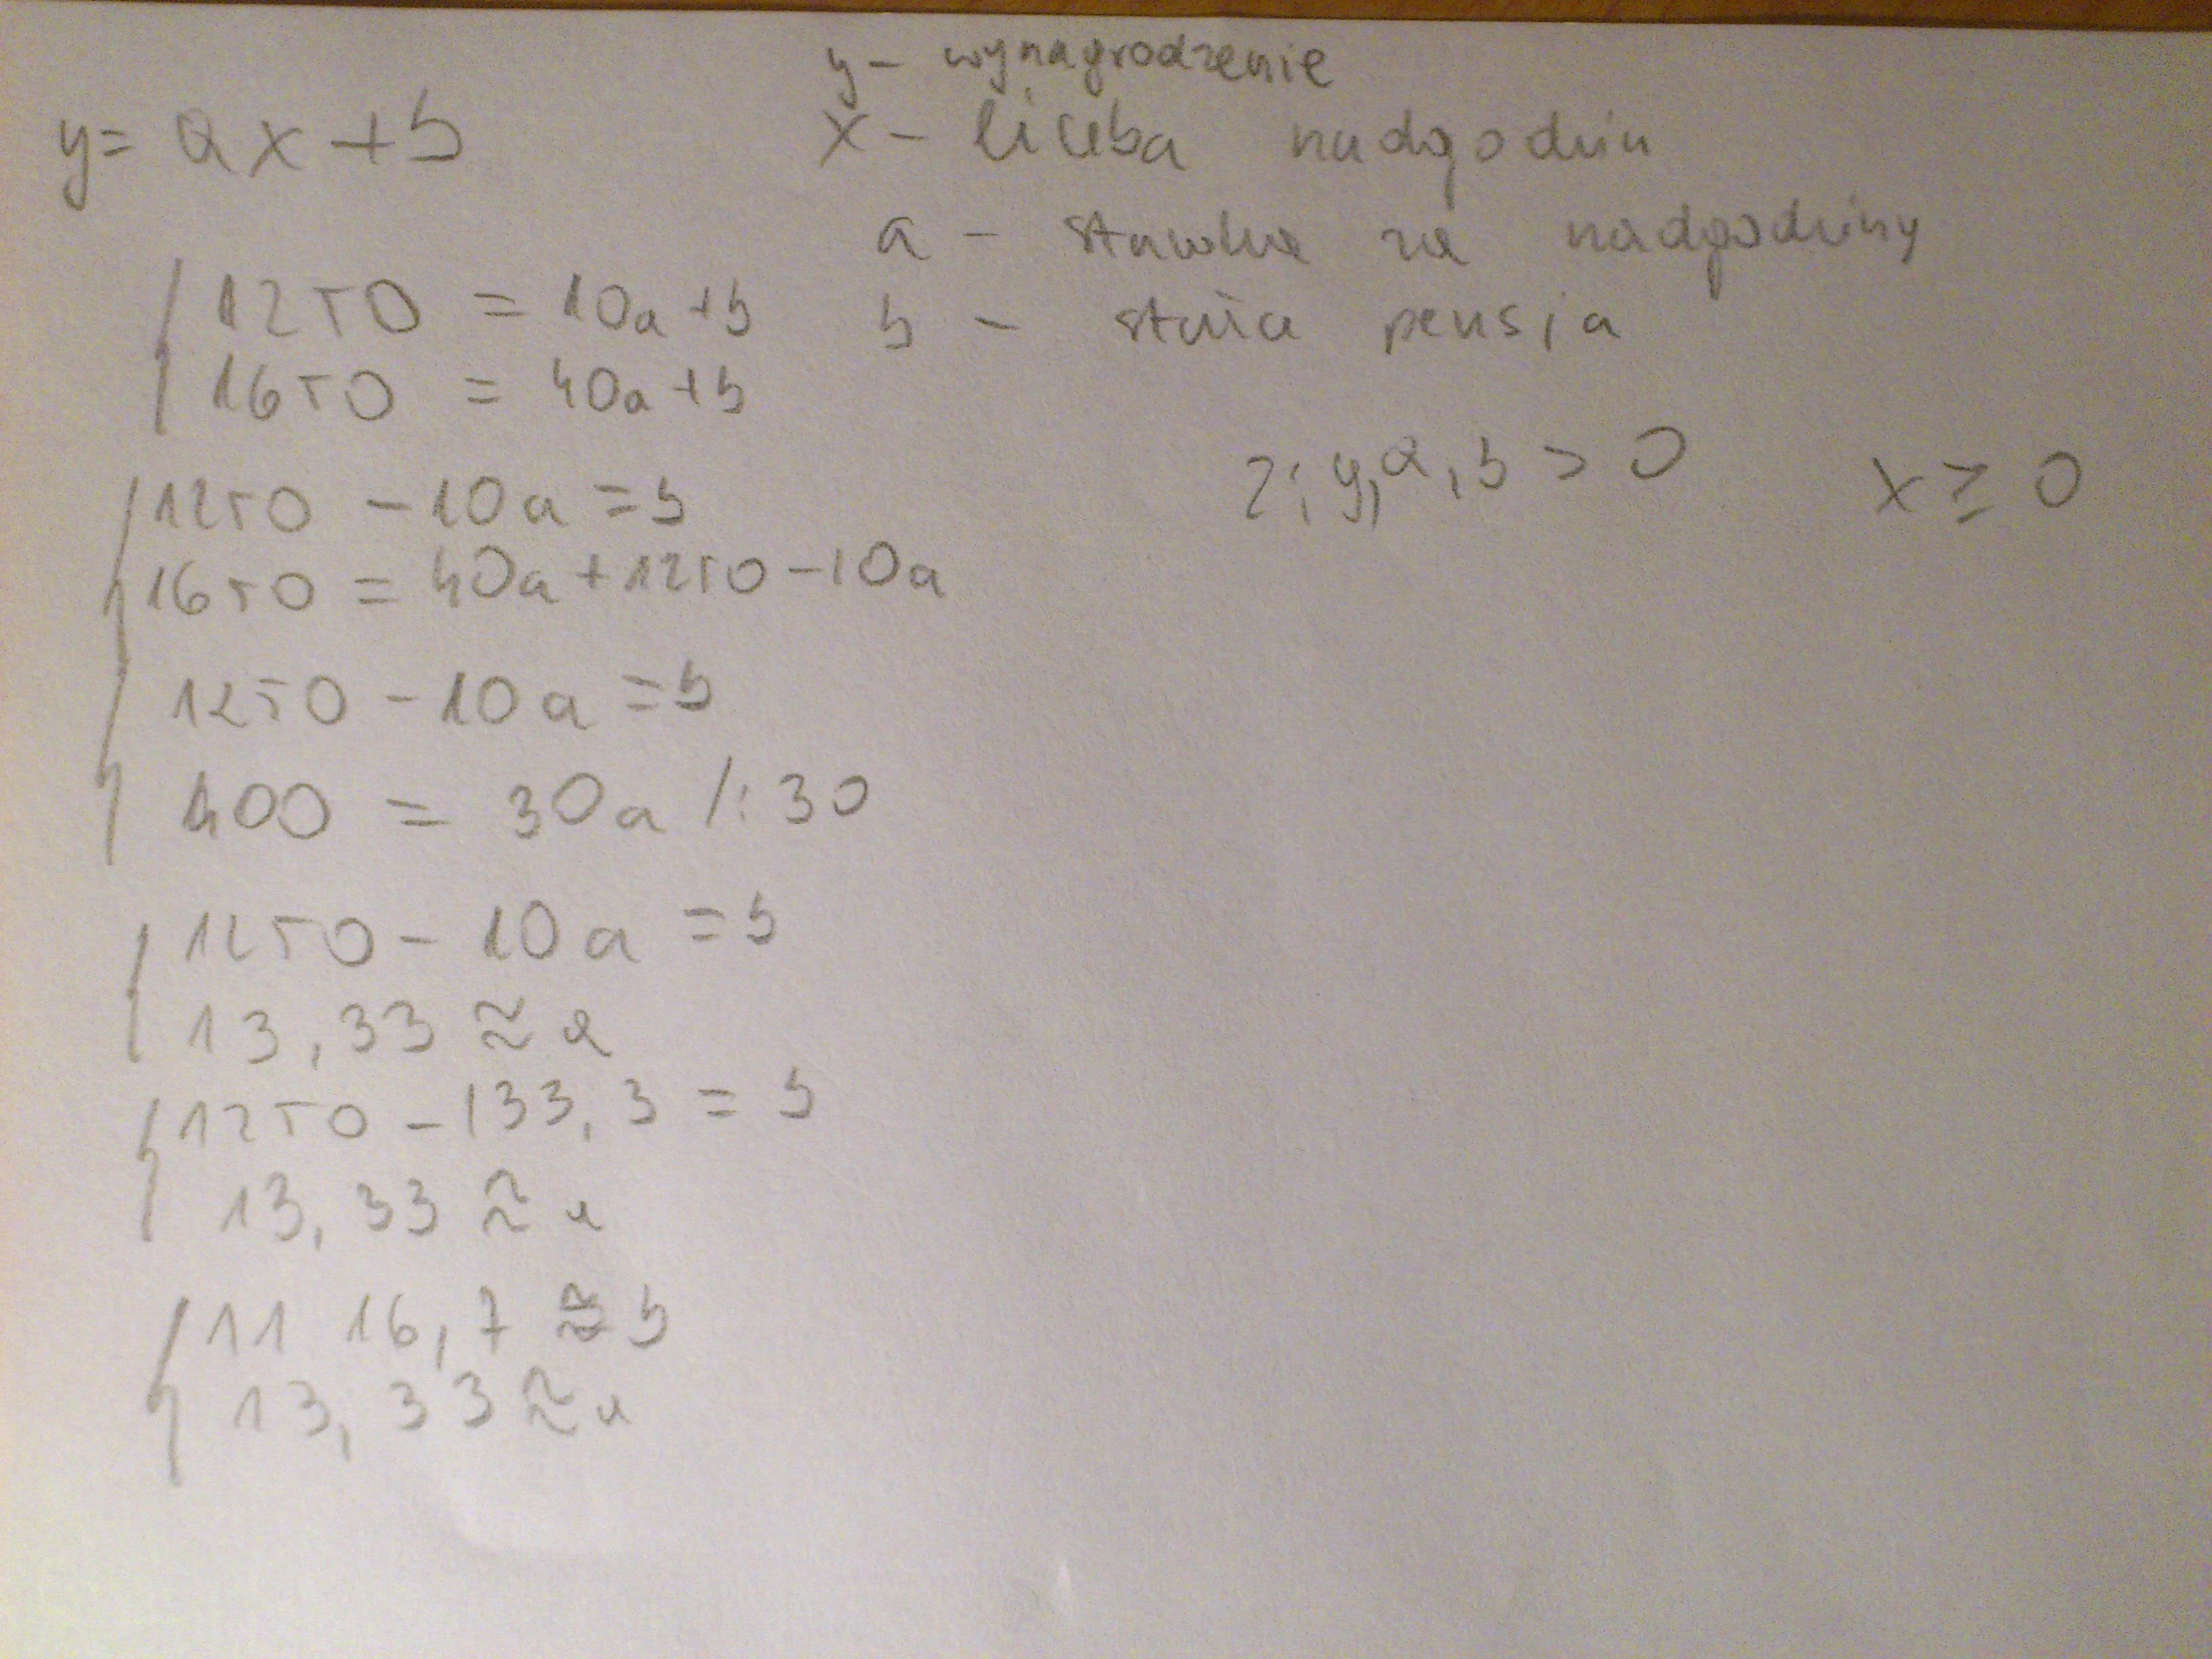 y - wynagrodzenie
y = ax + b
x - liczba nadgodzin
a - stawka za nadgodziny
1250 = 10a + b
b - stała pensja
1650 = 40a + b
Z: y, a, b > 0 x ≥ 0
1250 - 10a = b
1650 = 40a + 1250 - 10a
1250 - 10a = b
400 = 30a /: 30
1250 - 10a = b
13,33 ≈ a
1250 - 133,3 = b
13,33 ≈ a
1116,7 ≈ b
13,33 ≈ a